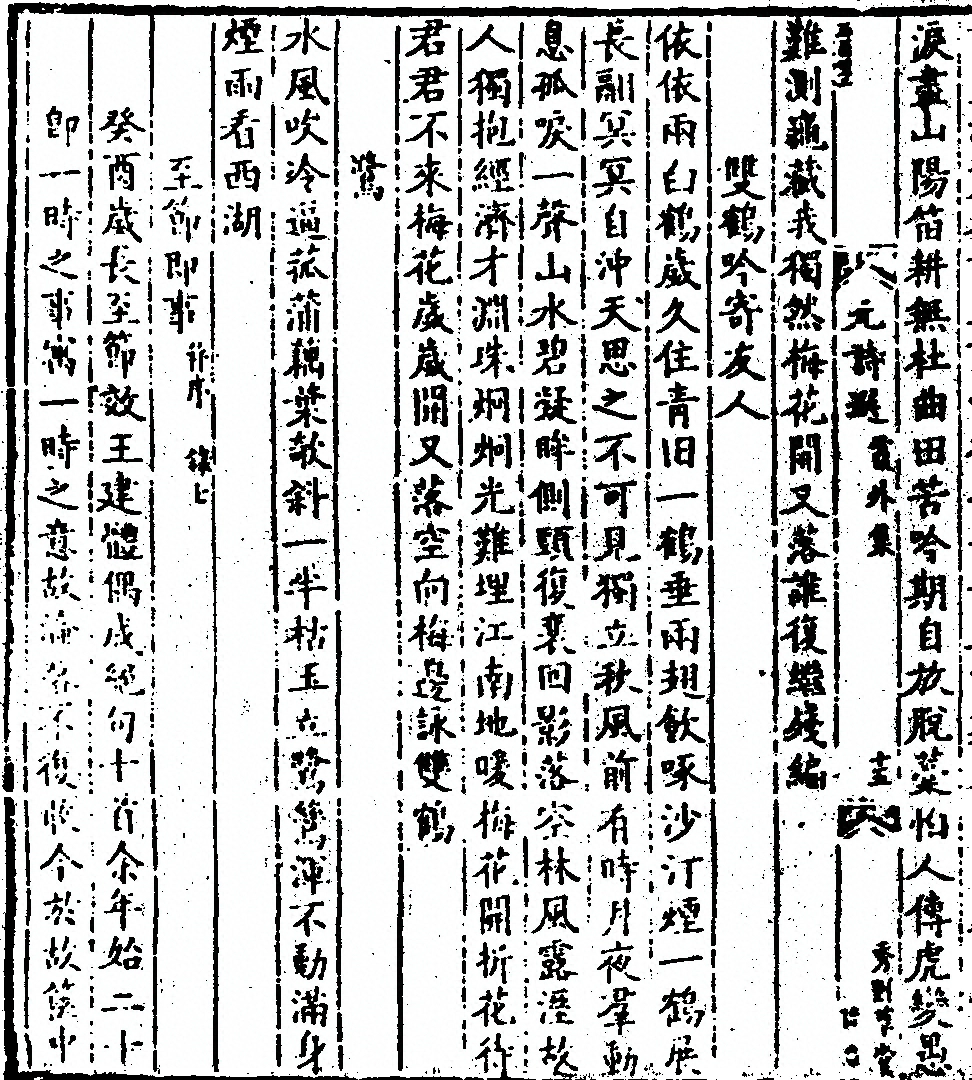 淚盡山陽笛耕無杜曲田苦吟期自放脫藁怕人傳虎變愚
元詩選 外集 十三 秀野草堂
難測龜藏我獨然梅花開又落誰復繼殘編
雙鶴吟寄友人
依依兩白鶴歲久住青田一鶴垂兩翅飲啄沙汀煙一鶴展
長翮冥冥自沖天思之不可見獨立秋風前有時月夜羣動
息孤唳一聲山水碧凝眸側頸復裴回影落空林風露溼故
人獨抱經濟才淵珠炯炯光難埋江南地暖梅花開折花待
君君不來梅花歲歲開又落空向梅邊詠雙鶴
鷺
水風吹冷逼菰蒲藕葉欹斜一半枯玉立鷺鷥渾不動滿身
煙雨看西湖
至節即事
癸酉歲長至節效王建體偶成絕句十首余年始二十
卽一時之事寓一時之意故淪不復收今於故篋中